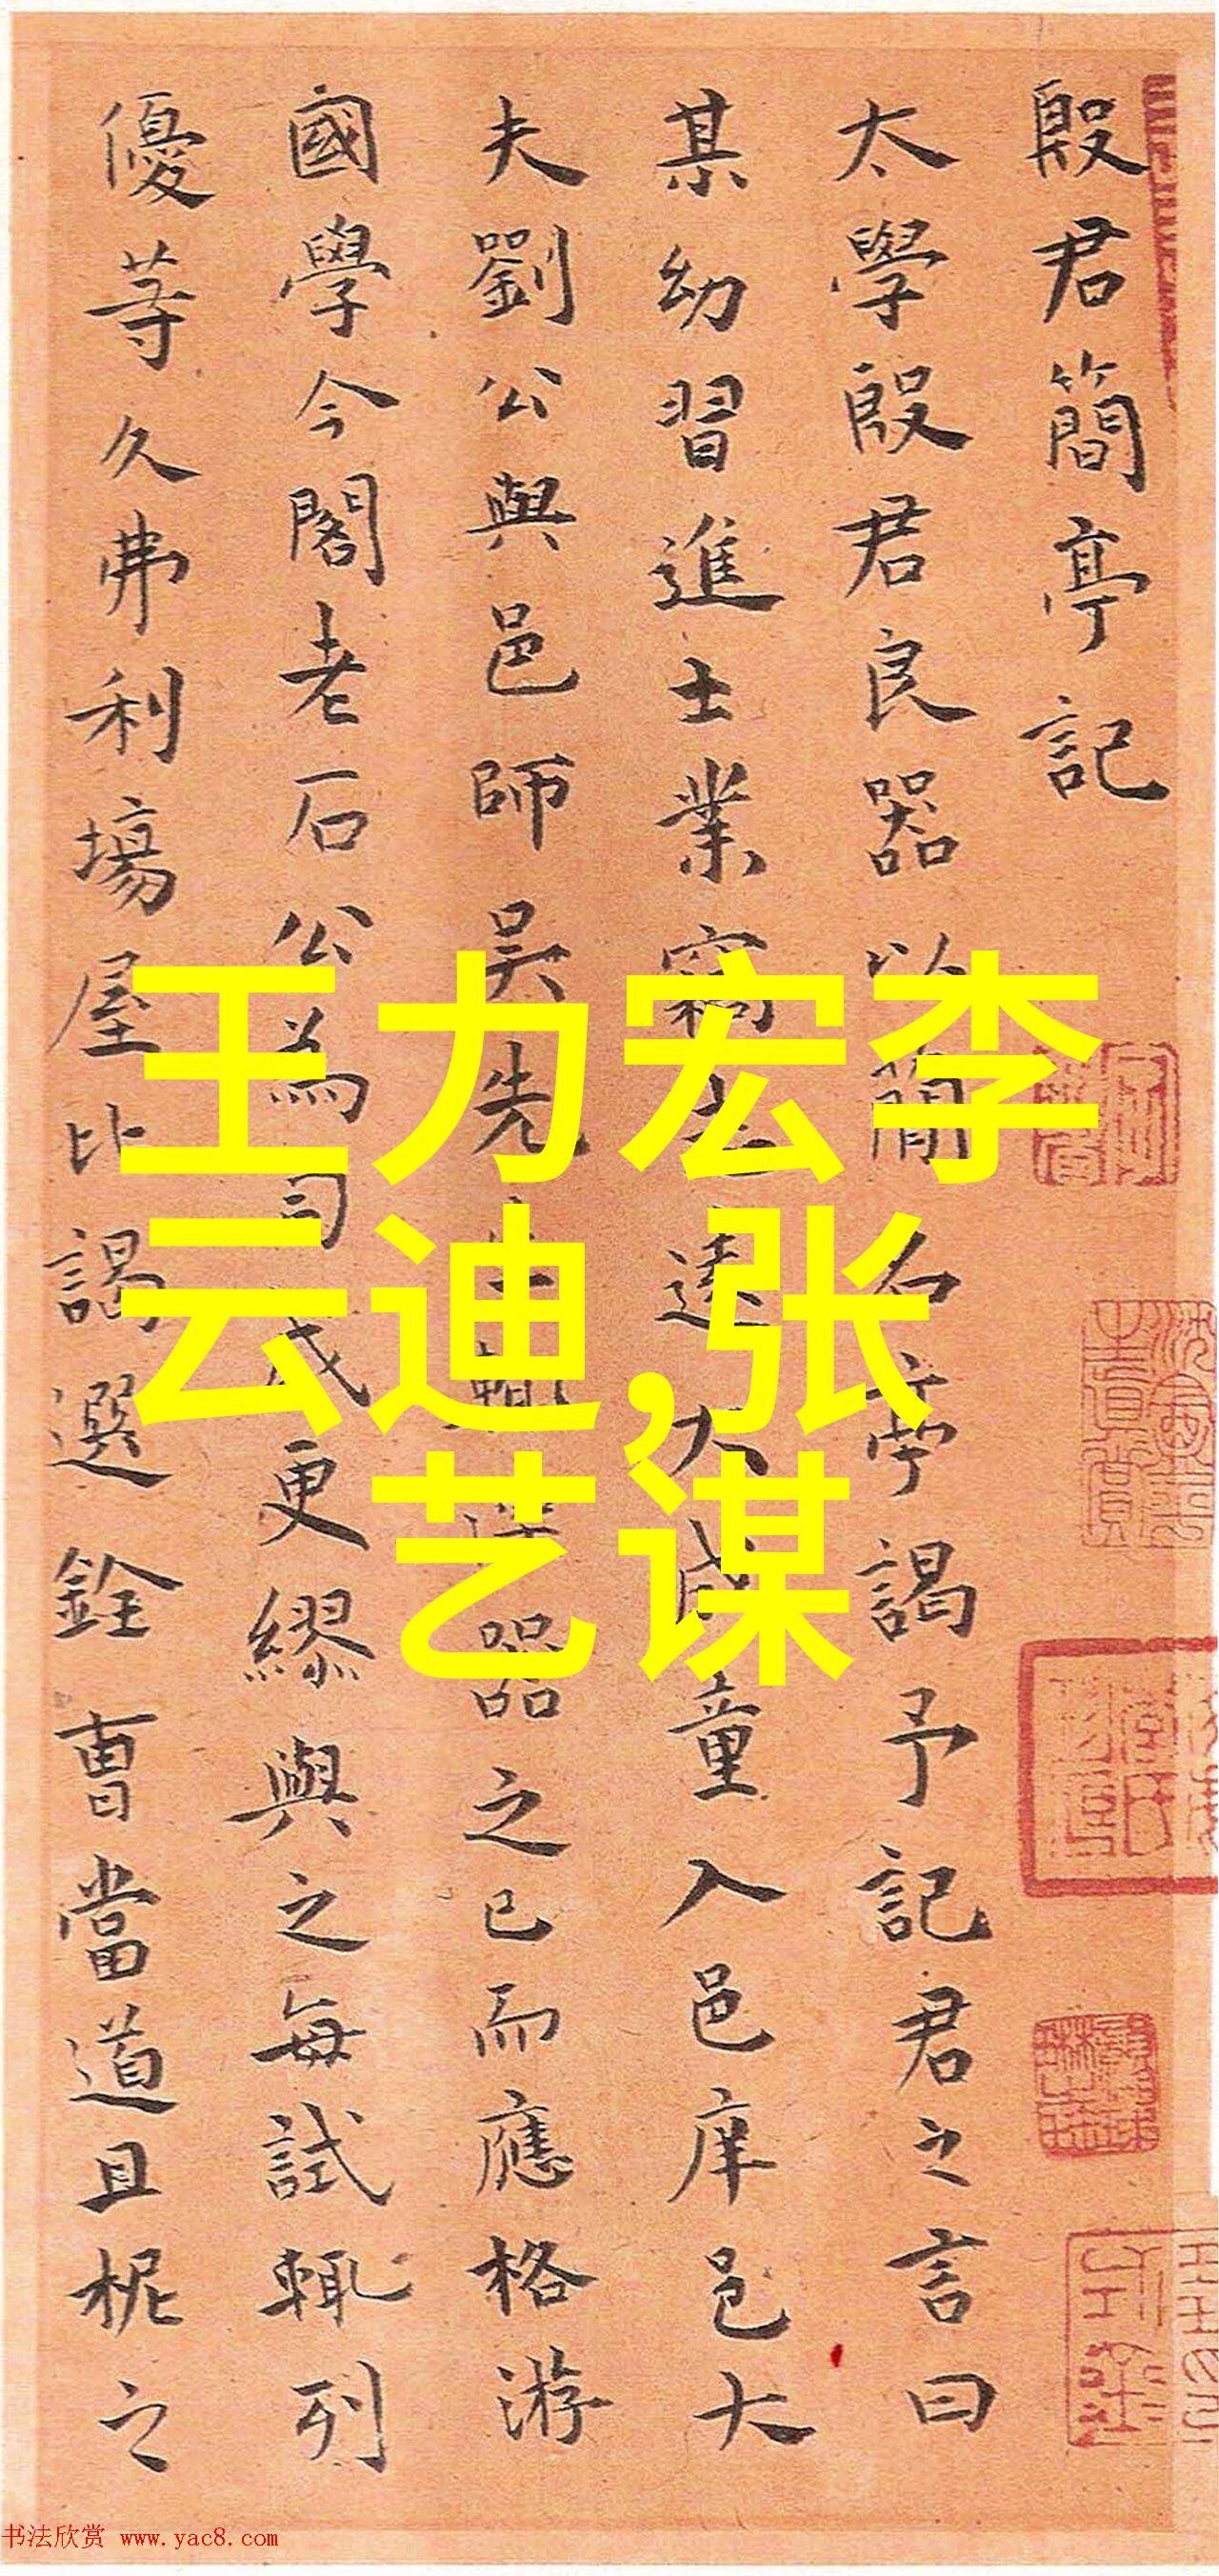 殷君簡亭記
太學殷君良器以簡名亭謁予記君之言曰
某幼習進士業竊大成童入邑庠邑大
夫劉公與邑師吳先生輒器之已而應格游
國學今閣老石公為司成更繆與之每試輒列
優等久弗利場屋比謁選銓曹當道且柅之
王力宏李
云迪,张
艺谋
书法欣赏 www.yac8.com